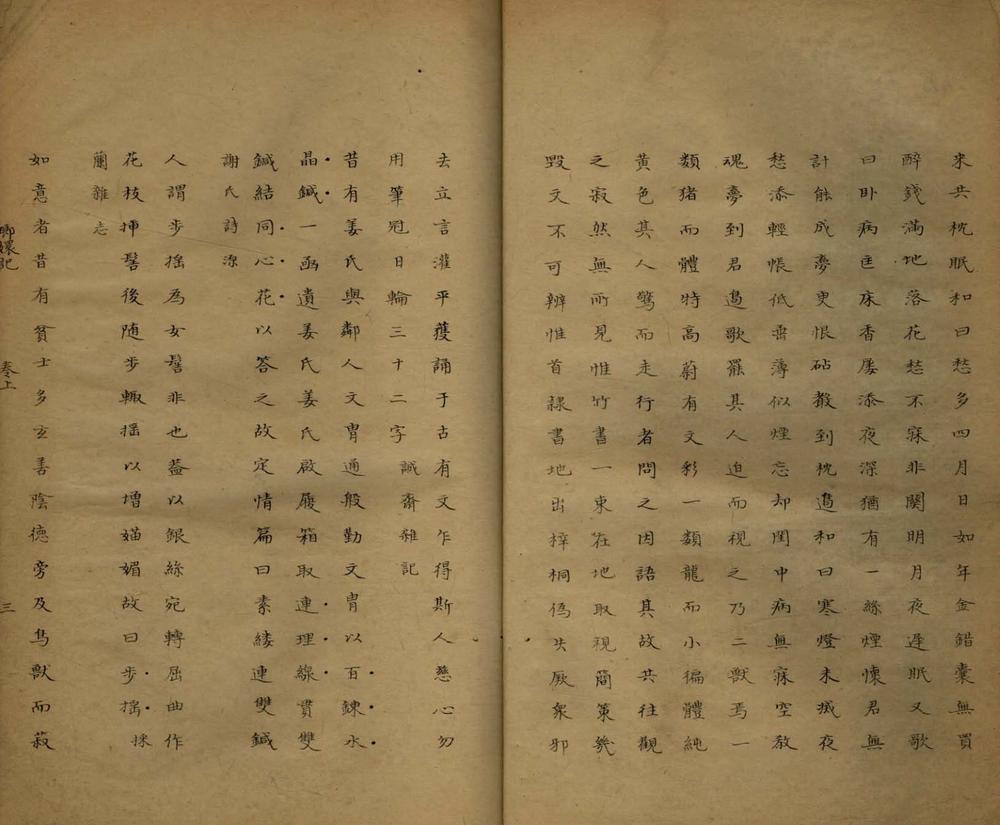 来共枕眠和曰愁多四月日如年金錯囊無買
醉錢滿地落花愁不寐非関明月夜遲眠又歌
曰卧病匡床香屡添夜深猶有一絲煙懷君無
計能成夢更恨砧敎到枕邉和曰寒燈未滅夜
愁添輕帳低垂薄似煙忘却閨中病無寐空敎
魂夢到君邉歌罷其人迫而視之乃二獣焉一
類猪而體特高蔚有文彩一類龍而小徧體純
黄色其人驚而走行者問之因語其故共往觀
之寂然無所見惟竹書一束在地取視簡策幾
毀文不可辨惟首隷書地出梓桐偽失厥衆邪
去立言灌平蒦誦于古有文乍得斯人慈心勿
用筆冠日輪三十二字 誠齋雜記
昔有姜氏與鄰人文胄通殷勤文胄以百錬水
晶鍼一函遺姜氏姜氏啟履箱取連理線貫雙
鍼結同心花以答之故定情篇曰素縷連雙鍼
謝氏詩源
人謂步摇為女髻非也葢以銀絲宛轉屈曲作
花枝揷髻後随步輙摇以増媌媚故曰步摇 採
蘭雜志
瑯嬛記 卷上 三
如意者昔有貧士多玄善陰德旁及鳥獸而菽